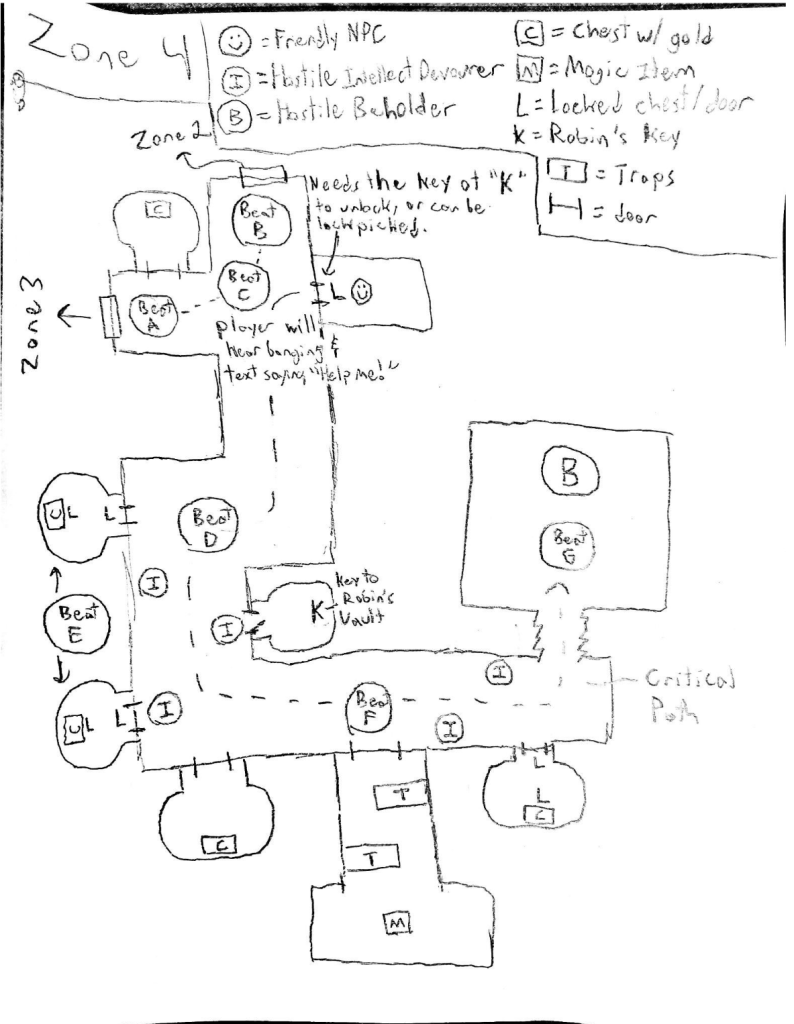 Zone 4
☺ = Friendly NPC
I = Hostile Intellect Devourer
B = Hostile Beholder
C = Chest w/ gold
M = Magic Item
L = Locked chest/door
K = Robin's Key
T = Traps
= door
Zone 2
Needs the key at "K"
to unlock, or can be
lockpicked.
C
Beat
B
Beat
C
Beat
A
L
Zone 3
player will
hear banging &
text saying "Help me!"
C L
L
Beat
D
B
Beat
G
I
Beat
E
I
K
Key to
Robin's
Vault
I
Critical
Path
C L
L
I
Beat
F
I
L
L
C
T
T
C
M